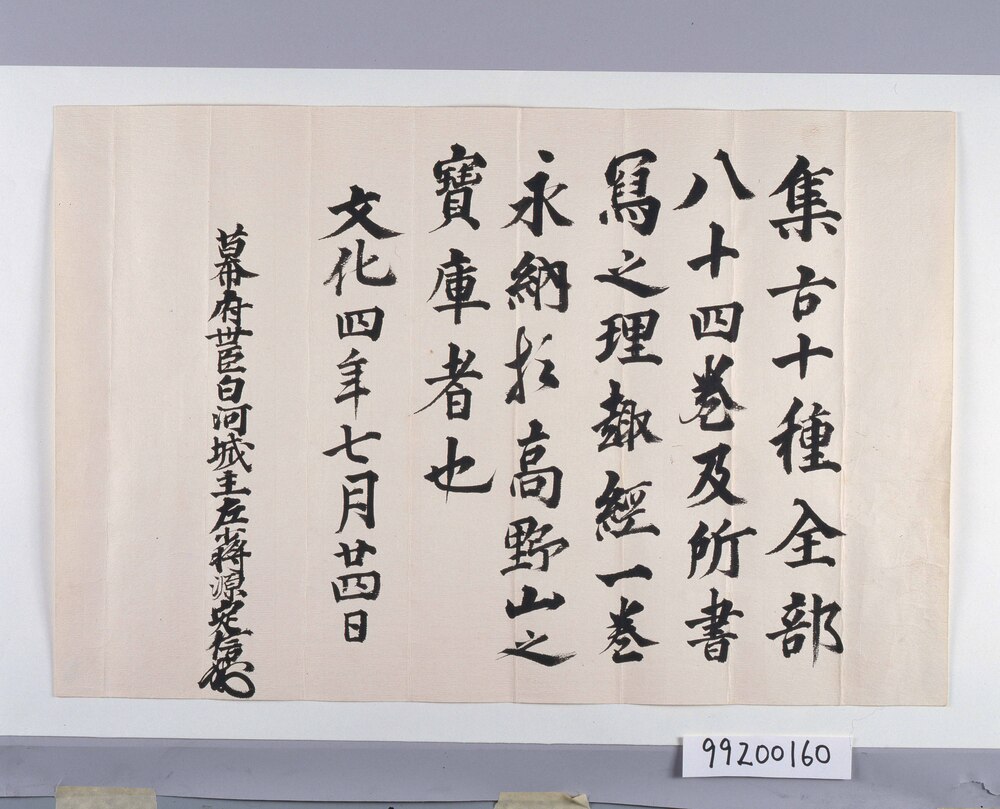 集古十種全部
八十四巻及所書
寫之理趣經一巻
永納於高野山之
寳庫者也
文化四年七月廿四日
幕府世臣白河城主左少将源定信
99200160